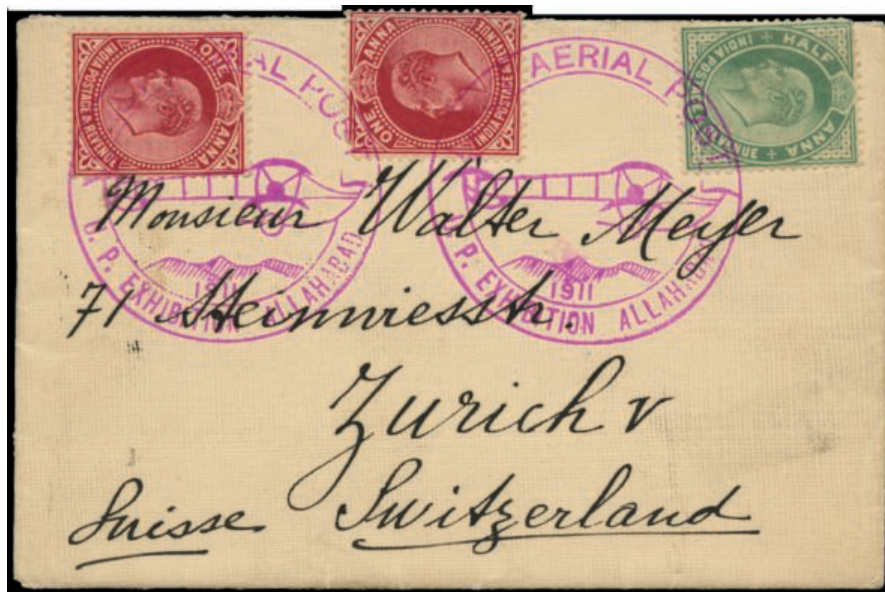 ONE ANNA
INDIA POSTAGE & REVENUE
ONE ANNA
INDIA POSTAGE & REVENUE
HALF ANNA
INDIA POSTAGE & REVENUE
AERIAL POST
1911
U. P. EXHIBITION ALLAHABAD
AERIAL POST
1911
P. EXHIBITION ALLAHABAD
Monsieur Walter Meyer
71 Steinwiesstr.
Zurich V
Suisse Switzerland